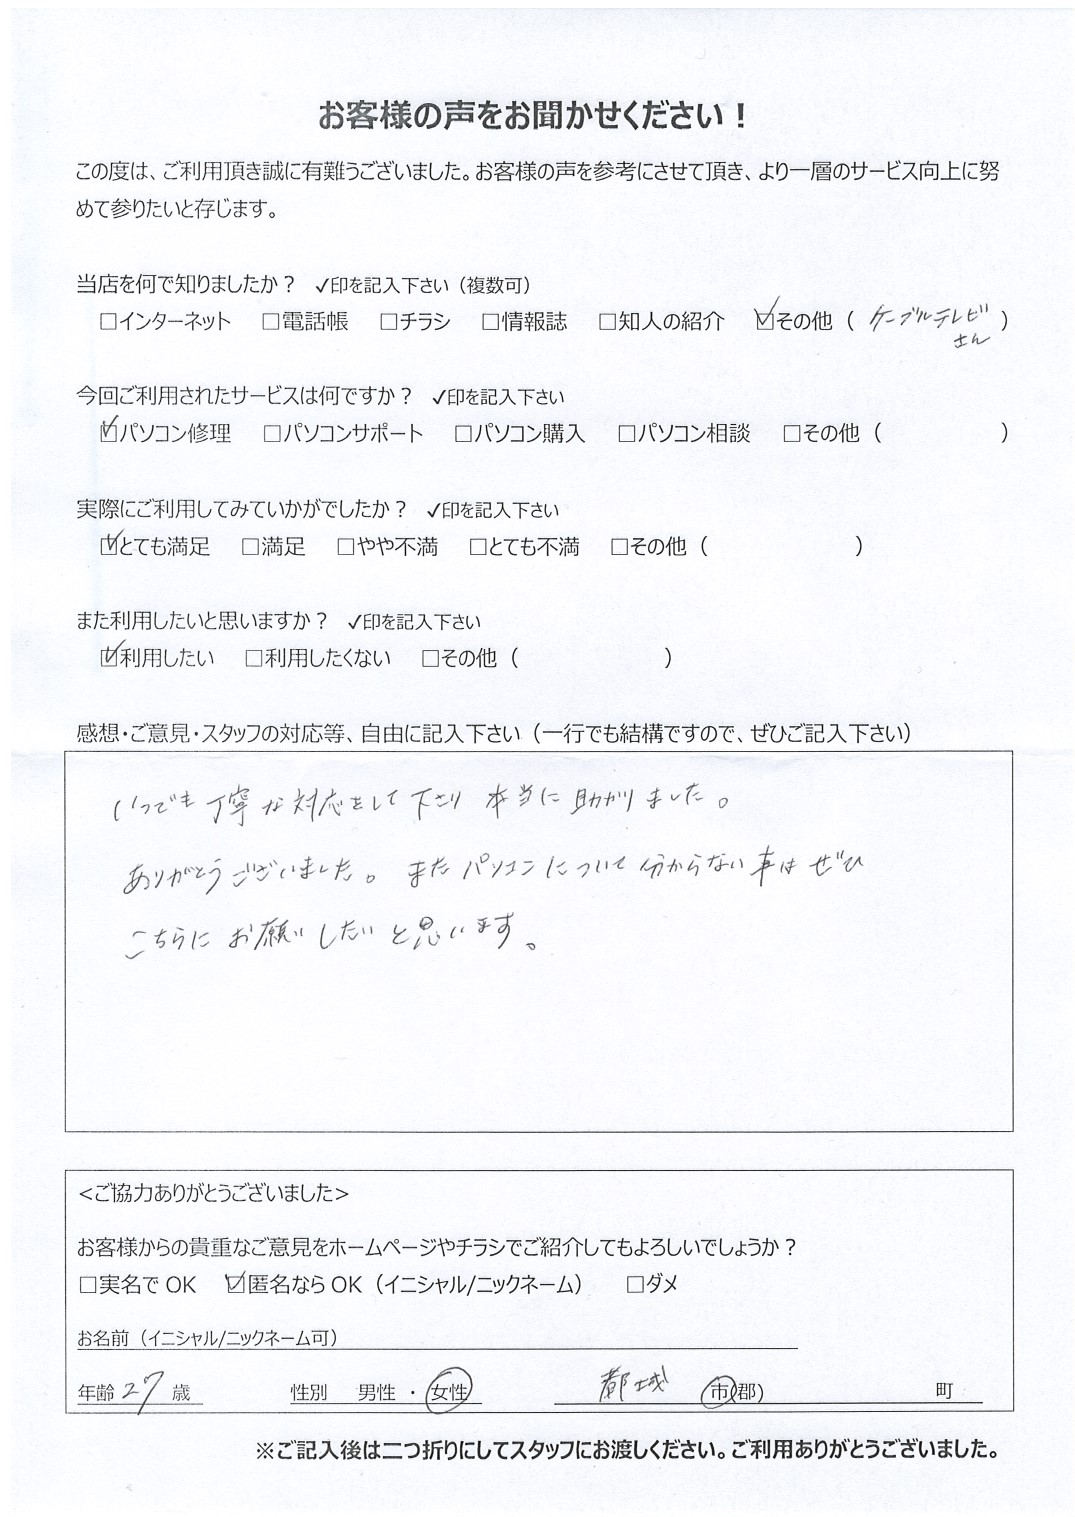 お客様の声をお聞かせください！
この度は、ご利用頂き誠に有難うございました。お客様の声を参考にさせて頂き、より一層のサービス向上に努
めて参りたいと存じます。
当店を何で知りましたか？ ✓印を記入下さい（複数可）
□インターネット □電話帳 □チラシ □情報誌 □知人の紹介 ☑その他（ ケーブルテレビ さん ）
今回ご利用されたサービスは何ですか？ ✓印を記入下さい
☑パソコン修理 □パソコンサポート □パソコン購入 □パソコン相談 □その他（ ）
実際にご利用してみていかがでしたか？ ✓印を記入下さい
☑とても満足 □満足 □やや不満 □とても不満 □その他（ ）
また利用したいと思いますか？ ✓印を記入下さい
☑利用したい □利用したくない □その他（ ）
感想・ご意見・スタッフの対応等、自由に記入下さい（一行でも結構ですので、ぜひご記入下さい）
いつでも丁寧な対応をして下さり 本当に助かりました。
ありがとうございました。 またパソコンについて分からない事はぜひ
こちらにお願いしたいと思います。
＜ご協力ありがとうございました＞
お客様からの貴重なご意見をホームページやチラシでご紹介してもよろしいでしょうか？
□実名で OK ☑匿名なら OK（イニシャル/ニックネーム） □ダメ
お名前（イニシャル/ニックネーム可）
年齢 27 歳 性別 男性 ・ 女性 都城 市(郡) 町
※ご記入後は二つ折りにしてスタッフにお渡しください。ご利用ありがとうございました。